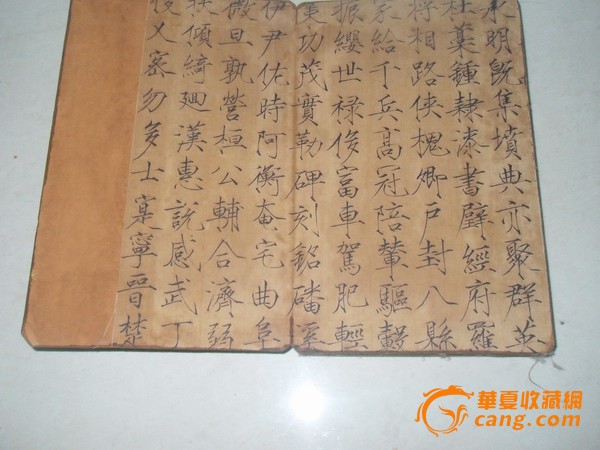 承明既集墳典亦聚群英
杜稾鍾隷漆書壁經府羅
將相路俠槐卿戶封八縣
家給千兵髙冠陪輦驅轂
振纓世禄侈富車駕肥輕
策功茂實勒碑刻銘磻溪
伊尹佐時阿衡奄宅曲阜
微旦孰營桓公輔合濟弱
扶傾綺廻漢惠說感武丁
俊乂密勿多士寔寧晉楚
華夏收藏網
cang.com